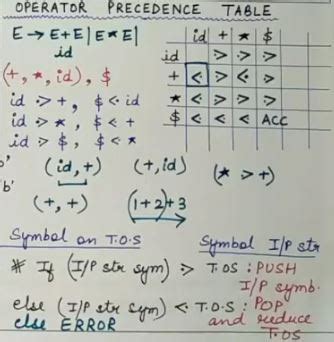 OPERATOR PRECEDENCE TABLE
E → E+E | E*E |
id
(+, *, id), $
id ⋗ +, $ ⋖ id
id ⋗ *, $ ⋖ +
id ⋗ $, $ ⋖ *
id + * $
id ⋗ ⋗ ⋗
+ ⋖ ⋗ ⋖ ⋗
* ⋖ ⋗ ⋗ ⋗
$ ⋖ ⋖ ⋖ ACC
(id, +) (+, id) (* ⋗ +)
'b'
(+, +) (1+2)+3
Symbol on T.O.S Symbol I/P str
# If (I/P str sym) ⋗ T.OS : PUSH
I/P symb.
else (I/P str sym) ⋖ T.O.S : POP
else ERROR and reduce
T.OS